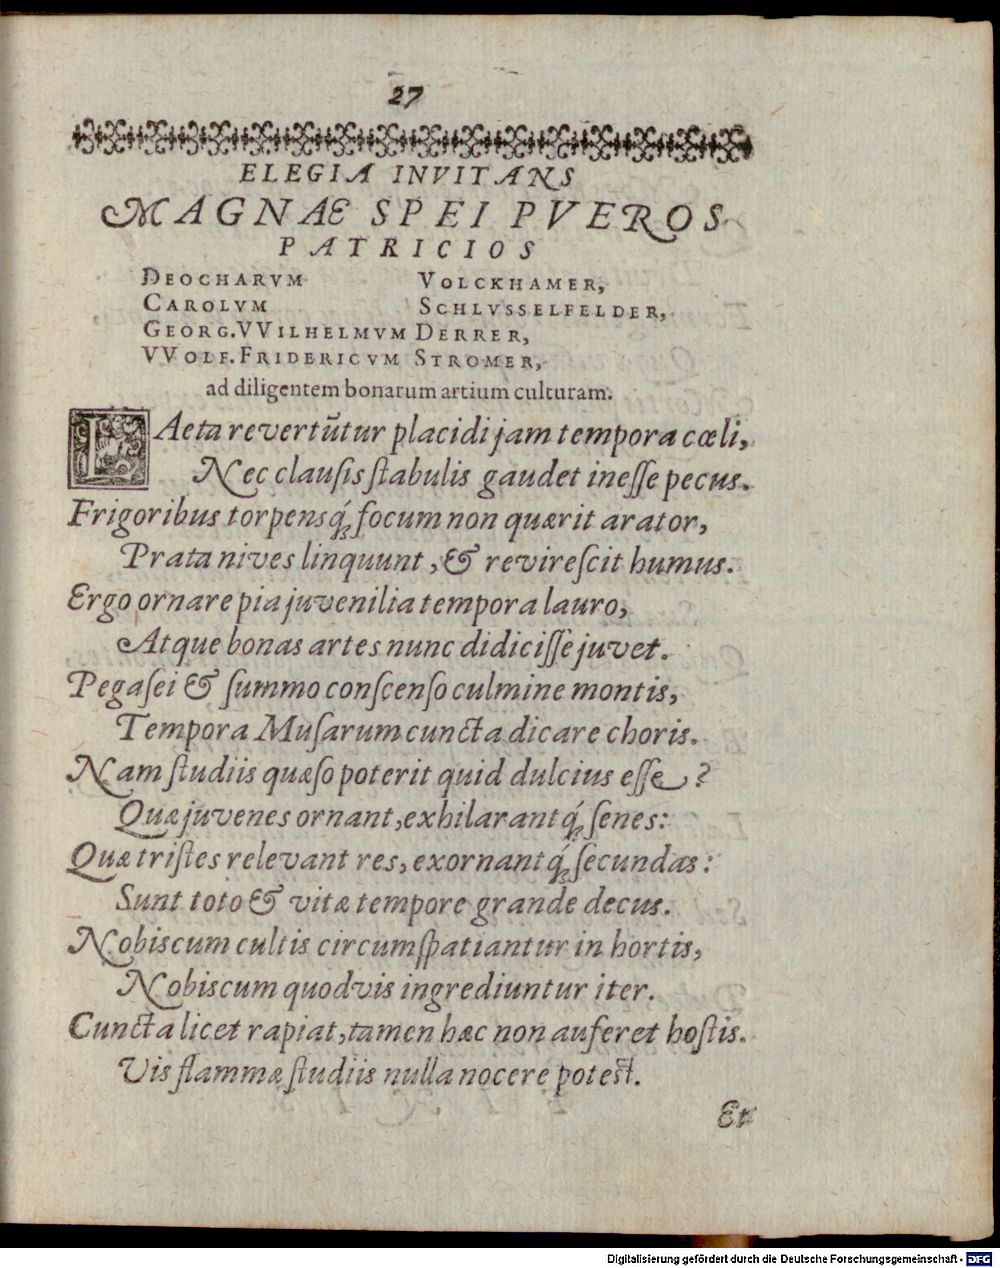 27
ELEGIA INVITANS
MAGNÆ SPEI PVEROS
PATRICIOS
DEOCHARVM VOLCKHAMER,
CAROLVM SCHLVSSELFELDER,
GEORG. VVILHELMVM DERRER,
VVOLF. FRIDERICVM STROMER,
ad diligentem bonarum artium culturam.
LAeta revertũtur placidi jam tempora cœli,
Nec clausis stabulis gaudet inesse pecus.
Frigoribus torpensq́; focum non quærit arator,
Prata nives linquunt, & revirescit humus.
Ergo ornare pia juvenilia tempora lauro,
Atque bonas artes nunc didicisse juvet.
Pegasei & summo conscenso culmine montis,
Tempora Musarum cuncta dicare choris.
Nam studiis quæso poterit quid dulcius esse?
Quæ juvenes ornant, exhilarantq́; senes:
Quæ tristes relevant res, exornantq́; secundas:
Sunt toto & vitæ tempore grande decus.
Nobiscum cultis circumspatiantur in hortis,
Nobiscum quodvis ingrediuntur iter.
Cuncta licet rapiat, tamen hæc non auferet hostis.
Vis flammæ studiis nulla nocere potest.
Et
Digitalisierung gefördert durch die Deutsche Forschungsgemeinschaft - DFG